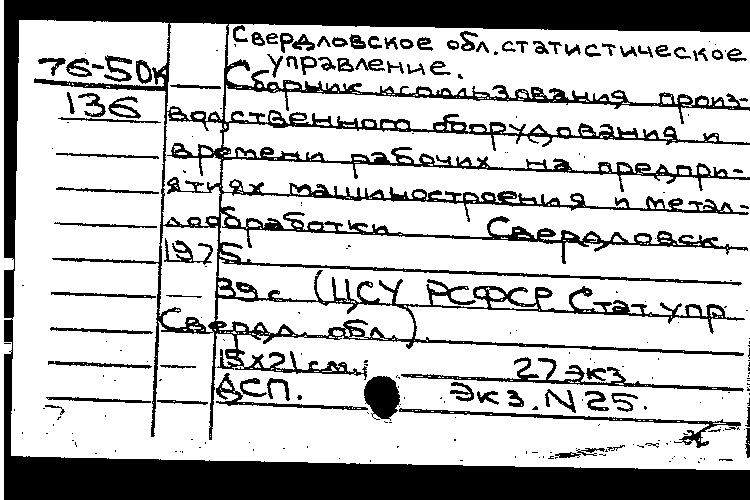 Свердловское обл. статистическое
управление.
76-50к
136
Сборник использования произ-
водственного оборудования и
времени рабочих на предпри-
ятиях машиностроения и метал-
лообработки. Свердловск,
1975.
39 с. (ЦСУ РСФСР. Стат. упр
Свердл. обл.)
15х21 см. 27 экз.
ДСП. Экз. N 25.